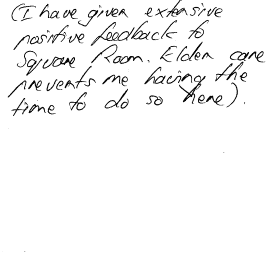 (I have given extensive
positive feedback to
Square Room. Elder care
prevents me having the
time to do so here).